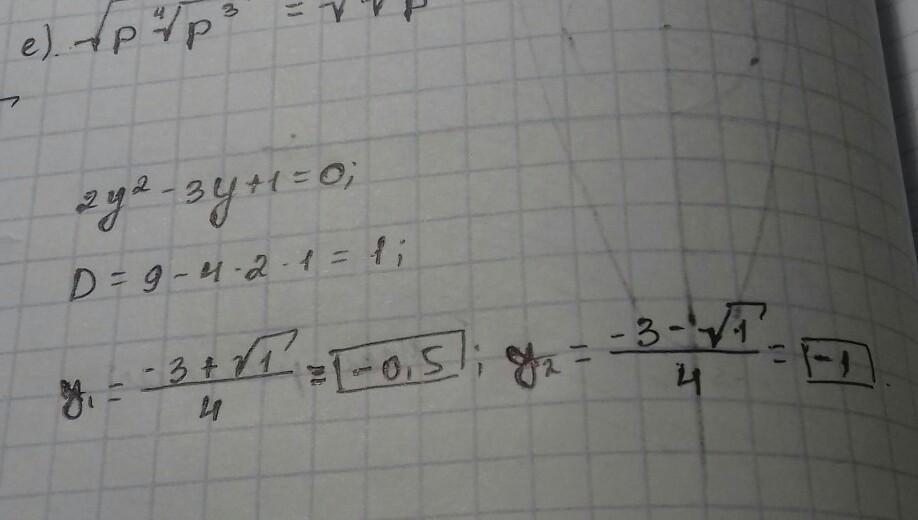 e). √p ⁴√p³ = √√p
2y² - 3y + 1 = 0;
D = 9 - 4 · 2 · 1 = 1;
y₁ = (-3 + √1)/4 = -0,5; y₂ = (-3 - √1)/4 = -1.